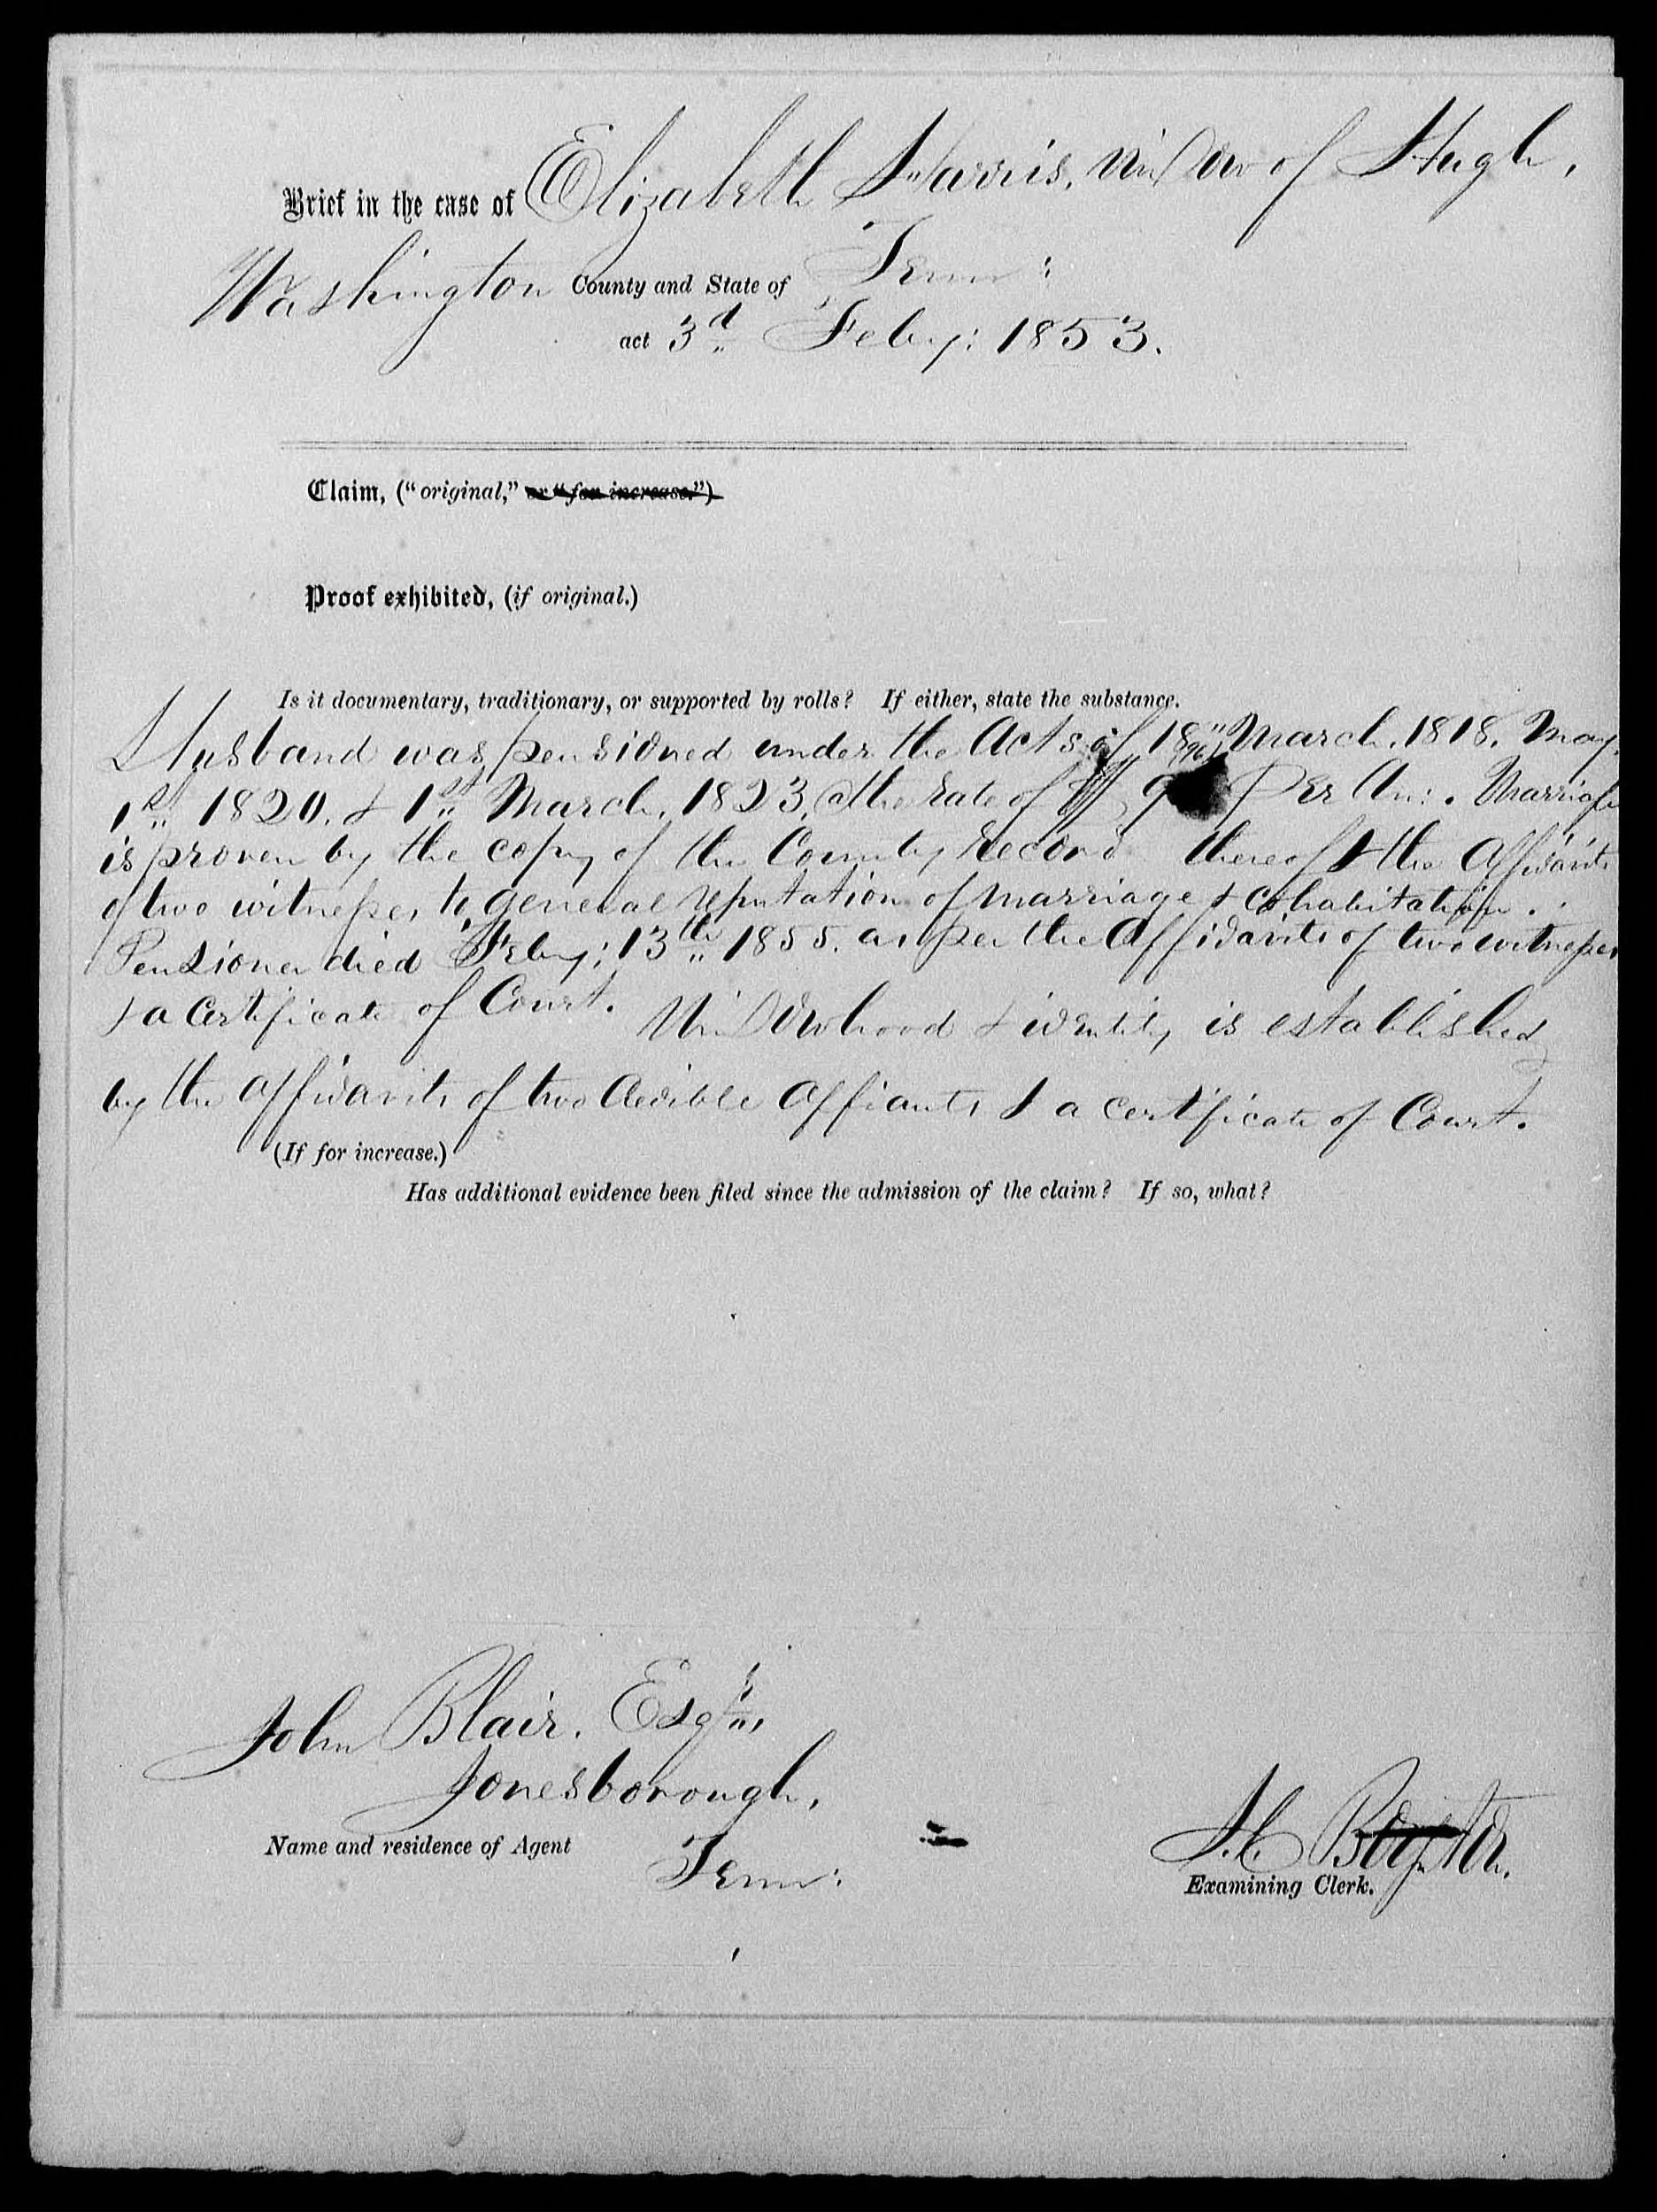 Brief in the case of Elizabeth Harris, widow of Hugh,
Washington County and State of Tenn:
act 3d Feby: 1853.
Claim, ("original," or "for increase.")
Proof exhibited, (if original.)
Is it documentary, traditionary, or supported by rolls? If either, state the substance.
Husband was pensioned under the Acts of 18" March, 1818, May
1st 1820, & 1st March, 1823, at the rate of $ 96 Per An: . Marriage
is proven by the copy of the County record thereof & the affidavits
of two witnesses to general reputation of marriage & cohabitation.
Pensioner died Feby: 13th 1855, as per the affidavits of two witnesses
& a Certificate of Court. Widowhood & identity is established
by the affidavits of two credible affiants & a certificate of Court.
(If for increase.)
Has additional evidence been filed since the admission of the claim? If so, what?
John Blair, Esqr.,
Jonesborough,
Name and residence of Agent Tenn:
Examining Clerk.